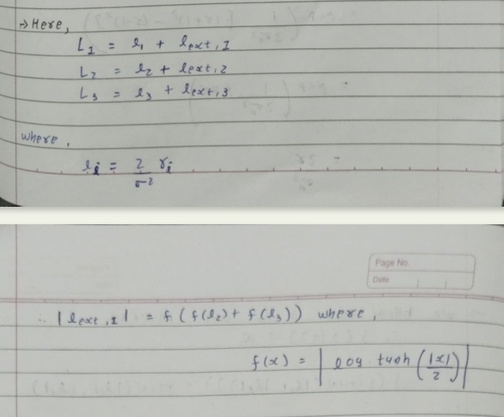 → Here,
L₁ = l₁ + lext,1
L₂ = l₂ + lext,2
L₃ = l₃ + lext,3
where,
lᵢ = 2/σ² rᵢ
Page No.
Date
∴ |lext,1| = f(f(l₂) + f(l₃)) where,
f(x) = |log tanh(|x|/2)|